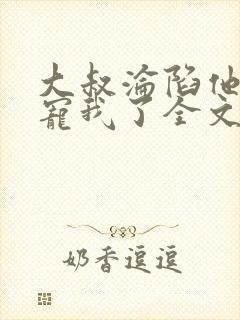 大叔淪陷他
寵我了全文
奶香逗逗